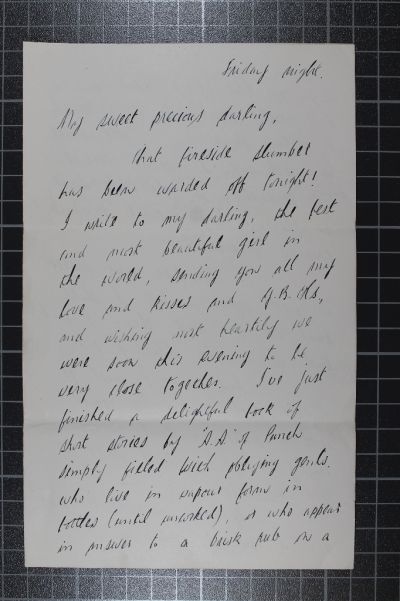 Friday night.
My sweet precious darling,
that fireside slumber
has been warded off tonight!
I write to my darling, the best
and most beautiful girl in
the world, sending you all my
love and kisses and
and wishing most heartily we
were soon this evening to be
very close together. I've just
finished a delightful book of
short stories by "A.A." of Punch
simply filled with obliging genii.
who live in vapour form in
bottles (until uncorked), or who appear
in answer to a brisk rub on a